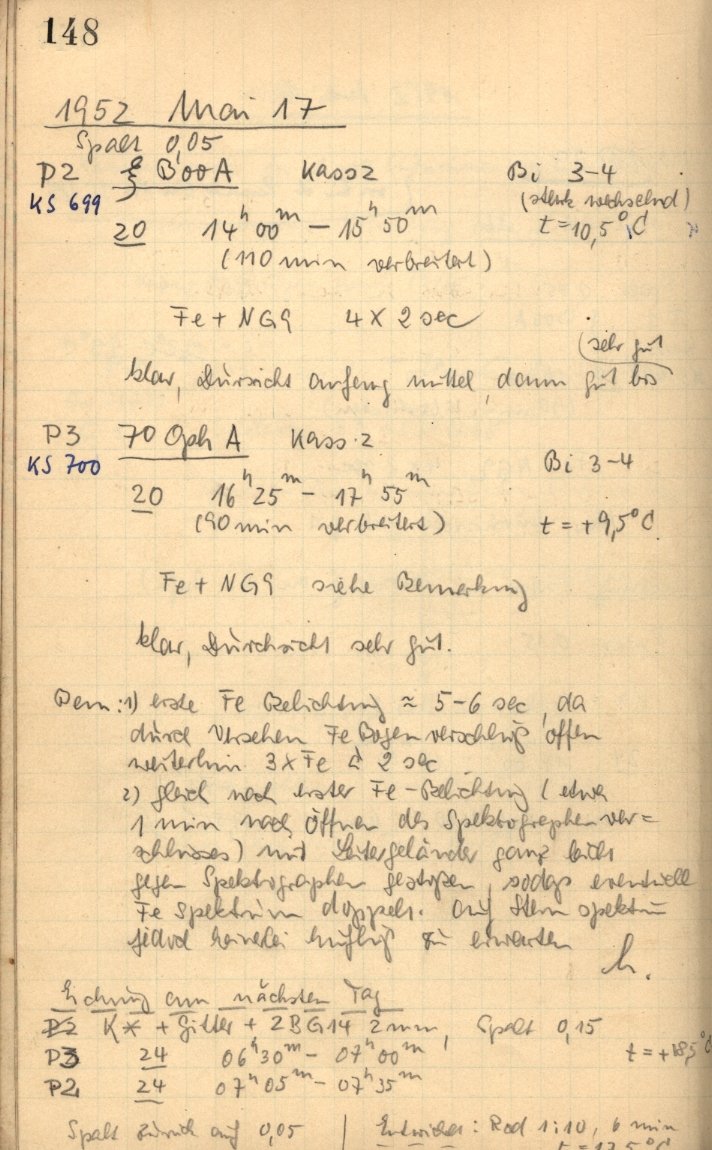 148
1952 Mai 17
Spalt 0,05
P2 ξ Boo A Kass 2 Bi 3-4
KS 699 (stark wechselnd)
20 14h 00m - 15h 50m t=10,5°C
(110 min verbreitert)
Fe + NG9 4 x 2 sec
(sehr gut
klar, Dursicht anfang mittel, dann gut bis
P3 70 Oph A Kass. 2
KS 700 Bi 3-4
20 16h 25m - 17h 55m
(90 min verbreitert) t = +9,5°C
Fe + NG9 siehe Bemerkung
klar, Durchsicht sehr gut.
Bem: 1) erste Fe Belichtung ≈ 5-6 sec, da
durch Versehen Fe Bogen verschluß offen
weiterhin 3x Fe à 2 sec
2) gleich nach erster Fe-Belichtung (etwa
1 min nach Öffnen des Spektrographen ver=
schlusses) mit Leitergeländer ganz leicht
gegen Spektrographen gestoßen, sodaß eventuell
Fe Spektrum doppelt. Auf Stern spektrum
jedoch keinerlei Einfluß zu erwarten
h.
Eichung am nächsten Tag
P2 K* + Gitter + 2 BG14 2 mm, Spalt 0,15
P3 24 06h 30m - 07h 00m t = +18,5°C
P2 24 07h 05m - 07h 35m
Spalt zurück auf 0,05 | Entwickl: Rod 1:10, 6 min